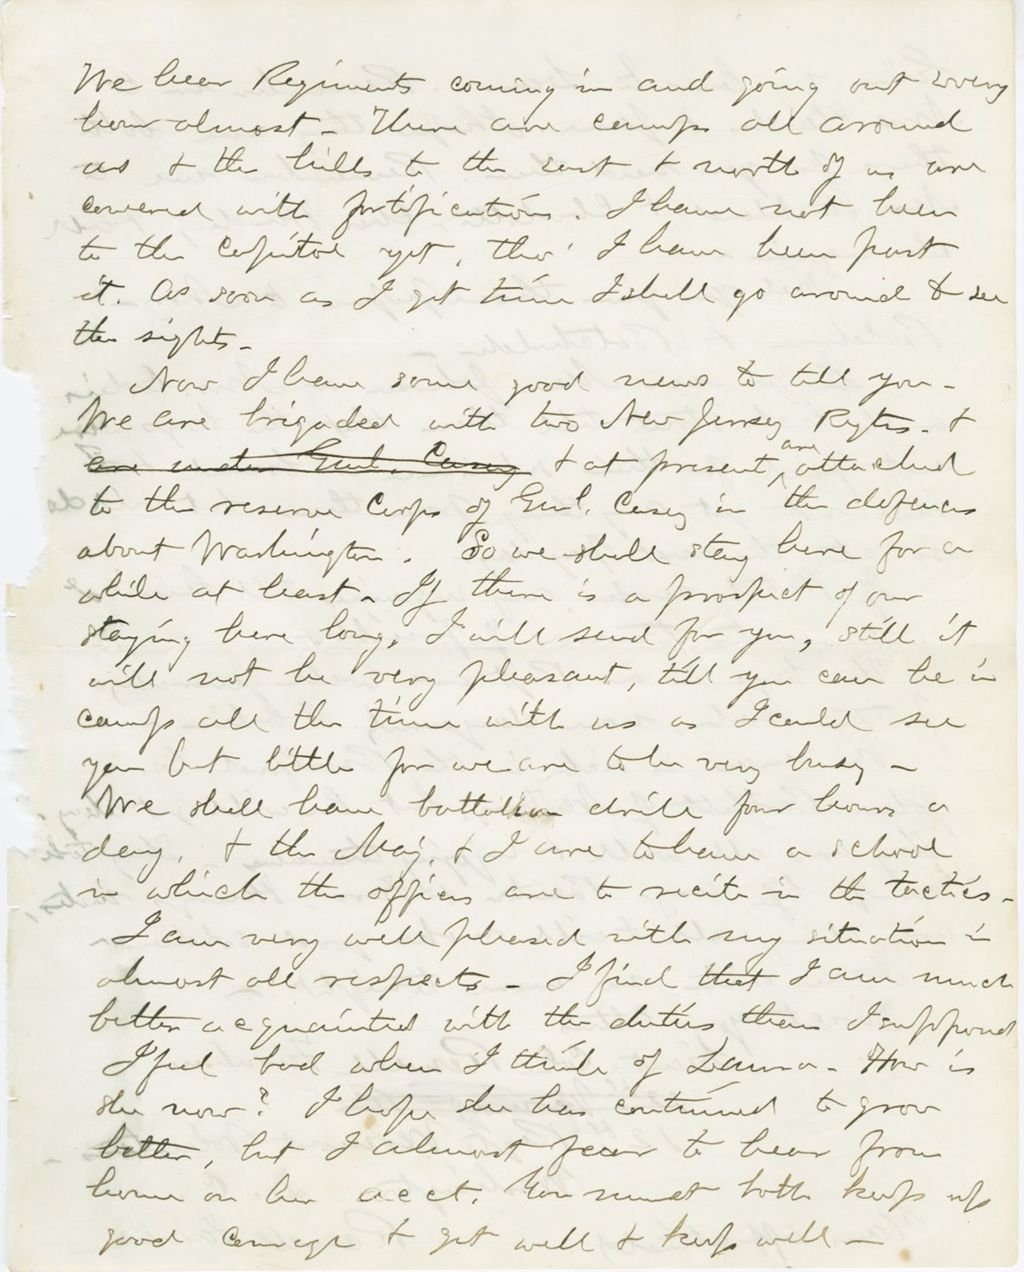 We hear Regiments coming in and going out every
hour almost - There are camps all around
us & the hills to the east & north of us are
covered with fortifications. I have not been
to the Capitol yet, tho' I have been past
it. As soon as I get time I shall go around & see
the sights -
Now I have some good news to tell you -
We are brigaded with two New Jersey Regts. &
are under Genl. Casey & at present are attached
to the reserve Corps of Genl. Casey in the defences
about Washington. So we shall stay here for a
while at least - If there is a prospect of our
staying here long, I will send for you, still it
will not be very pleasant, till you can be in
camp all the time with us as I could see
you but little for we are to be very busy -
We shall have battalion drill four hours a
day, & the Maj. & I are to have a school
in which the officers are to recite in the tactics -
I am very well pleased with my situation in
almost all respects - I find that I am much
better acquainted with the duties than I supposed
I feel bad when I think of Laura - How is
she now? I hope she has continued to grow
better, but I almost fear to hear from
home on her acct. You must both keep up
good courage & get well & keep well -